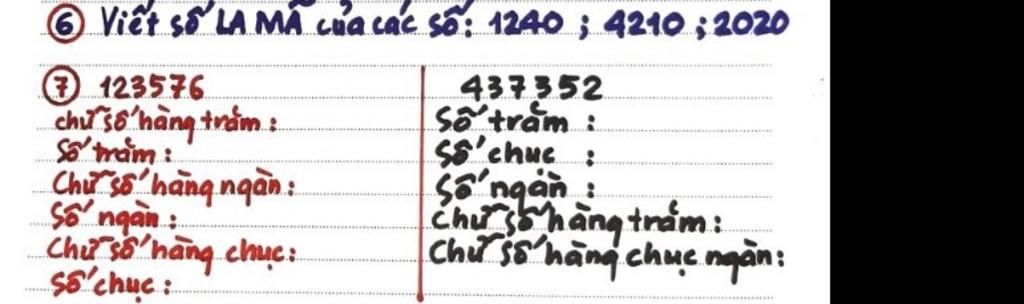 ⑥ Viết số LA MÃ của các số: 1240 ; 4210 ; 2020
⑦ 123576
chữ số hàng trăm :
Số trăm :
Chữ số hàng ngàn :
Số ngàn :
Chữ số hàng chục :
Số chục :
437352
Số trăm :
Số chục :
Số ngàn :
Chữ số hàng trăm :
Chữ số hàng chục ngàn :